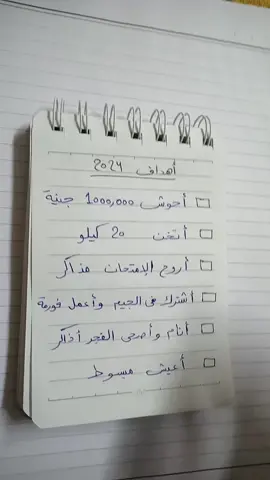 أهداف 2024
أحوش 1000,000 جنية
أتخن 20 كيلو
أروح الإمتحان مذاكر
أشترك فى الجيم وأعمل فورمة
أنام وأصحى الفجر أذاكر
أعيش مبسوط